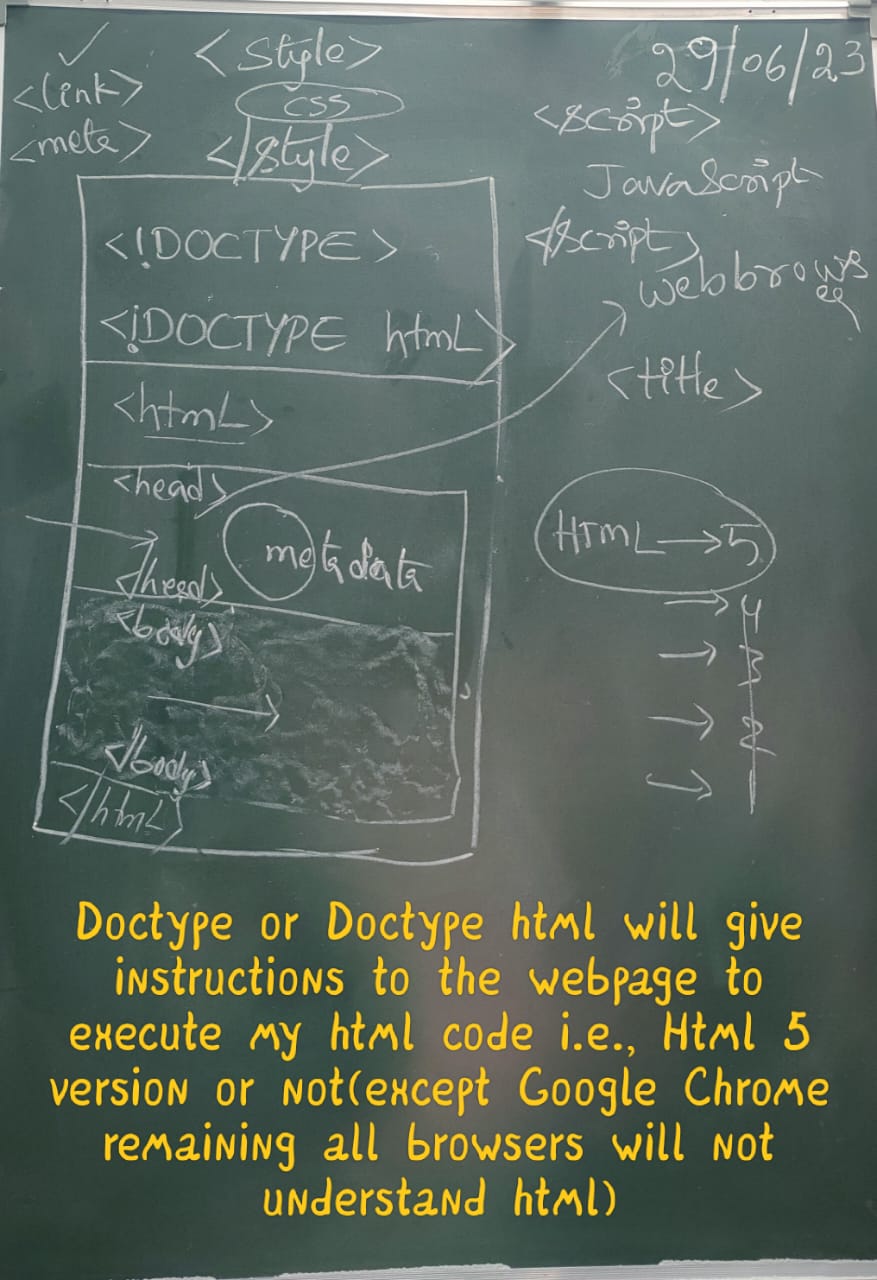 ✓
<link>
<meta>
<style>
css
</style>
29/06/23
<script>
JavaScript
</script>
webbrows
<title>
<!DOCTYPE>
<!DOCTYPE html>
<html>
<head>
metadata
</head>
<body>
</body>
</html>
HTML → 5
→ 4
→ 3
→ 2
→ 1
Doctype or Doctype html will give
instructions to the webpage to
execute my html code i.e., Html 5
version or not(except Google Chrome
remaining all browsers will not
understand html)